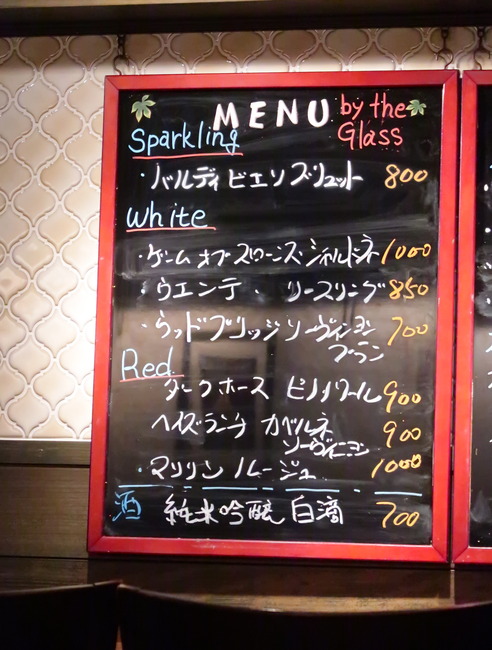 MENU by the
Glass
Sparkling
・バルディビエソ ブリュット 800
White
・ゲーム オブ スローンズ シャルドネ 1000
・ウエンテ・ リースリング 850
・ウッドブリッジ ソーヴィニヨン
ブラン 700
Red
ダークホース ピノノワール 900
ヘイズランチ カベルネ
ソーヴィニヨン 900
・マリリン ルージュ 1000
酒 純米吟醸 白滴 700